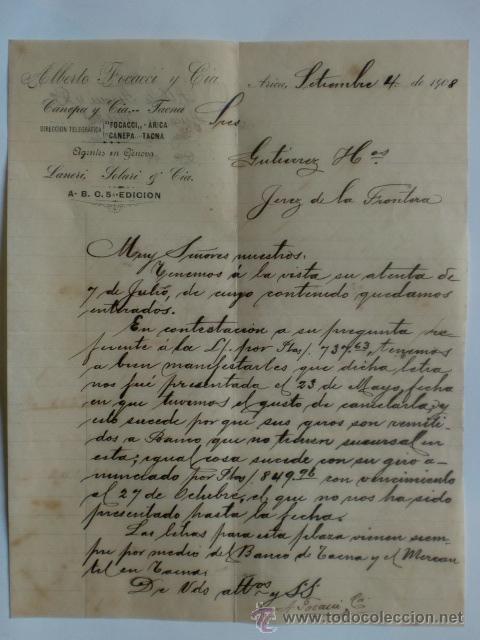 Alberto Focacci y Cia
Canepa y Cia.-- Tacna
DIRECCION TELEGRÁFICA "FOCACCI,, - ARICA
"CANEPA,, TACNA
Agentes en Génova
Laneri, Solari & Cia.
A. B. C. 5ª EDICION
Arica, Setiembre 4 de 1908
Sres
Gutierrez Hos
Jerez de la Frontera
Muy Señores nuestros:
Tenemos á la vista su atenta de
7 de Julio, de cuyo contenido quedamos
enterados.
En contestación a su pregunta re-
ferente á la L/. por Ptas/. 737.63, tenemos
a bien manifestarles que dicha letra
nos fué presentada el 23 de Mayo, fecha
en que tuvimos el gusto de cancelarla; y
esto sucede por que sus giros son remiti-
dos a Banco que no tienen sucursal en
esta; igual cosa sucede con su giro a-
nunciado por Ptas/. 849.96 con vencimiento
al 27 de Octubre, el que no nos ha sido
presentado hasta la fecha.
Las letras para esta plaza vienen siem-
pre por medio del Banco de Tacna y el Mercan
til en Tacna.
De Vds attos y SS
A Focacci y C
todocoleccion.net